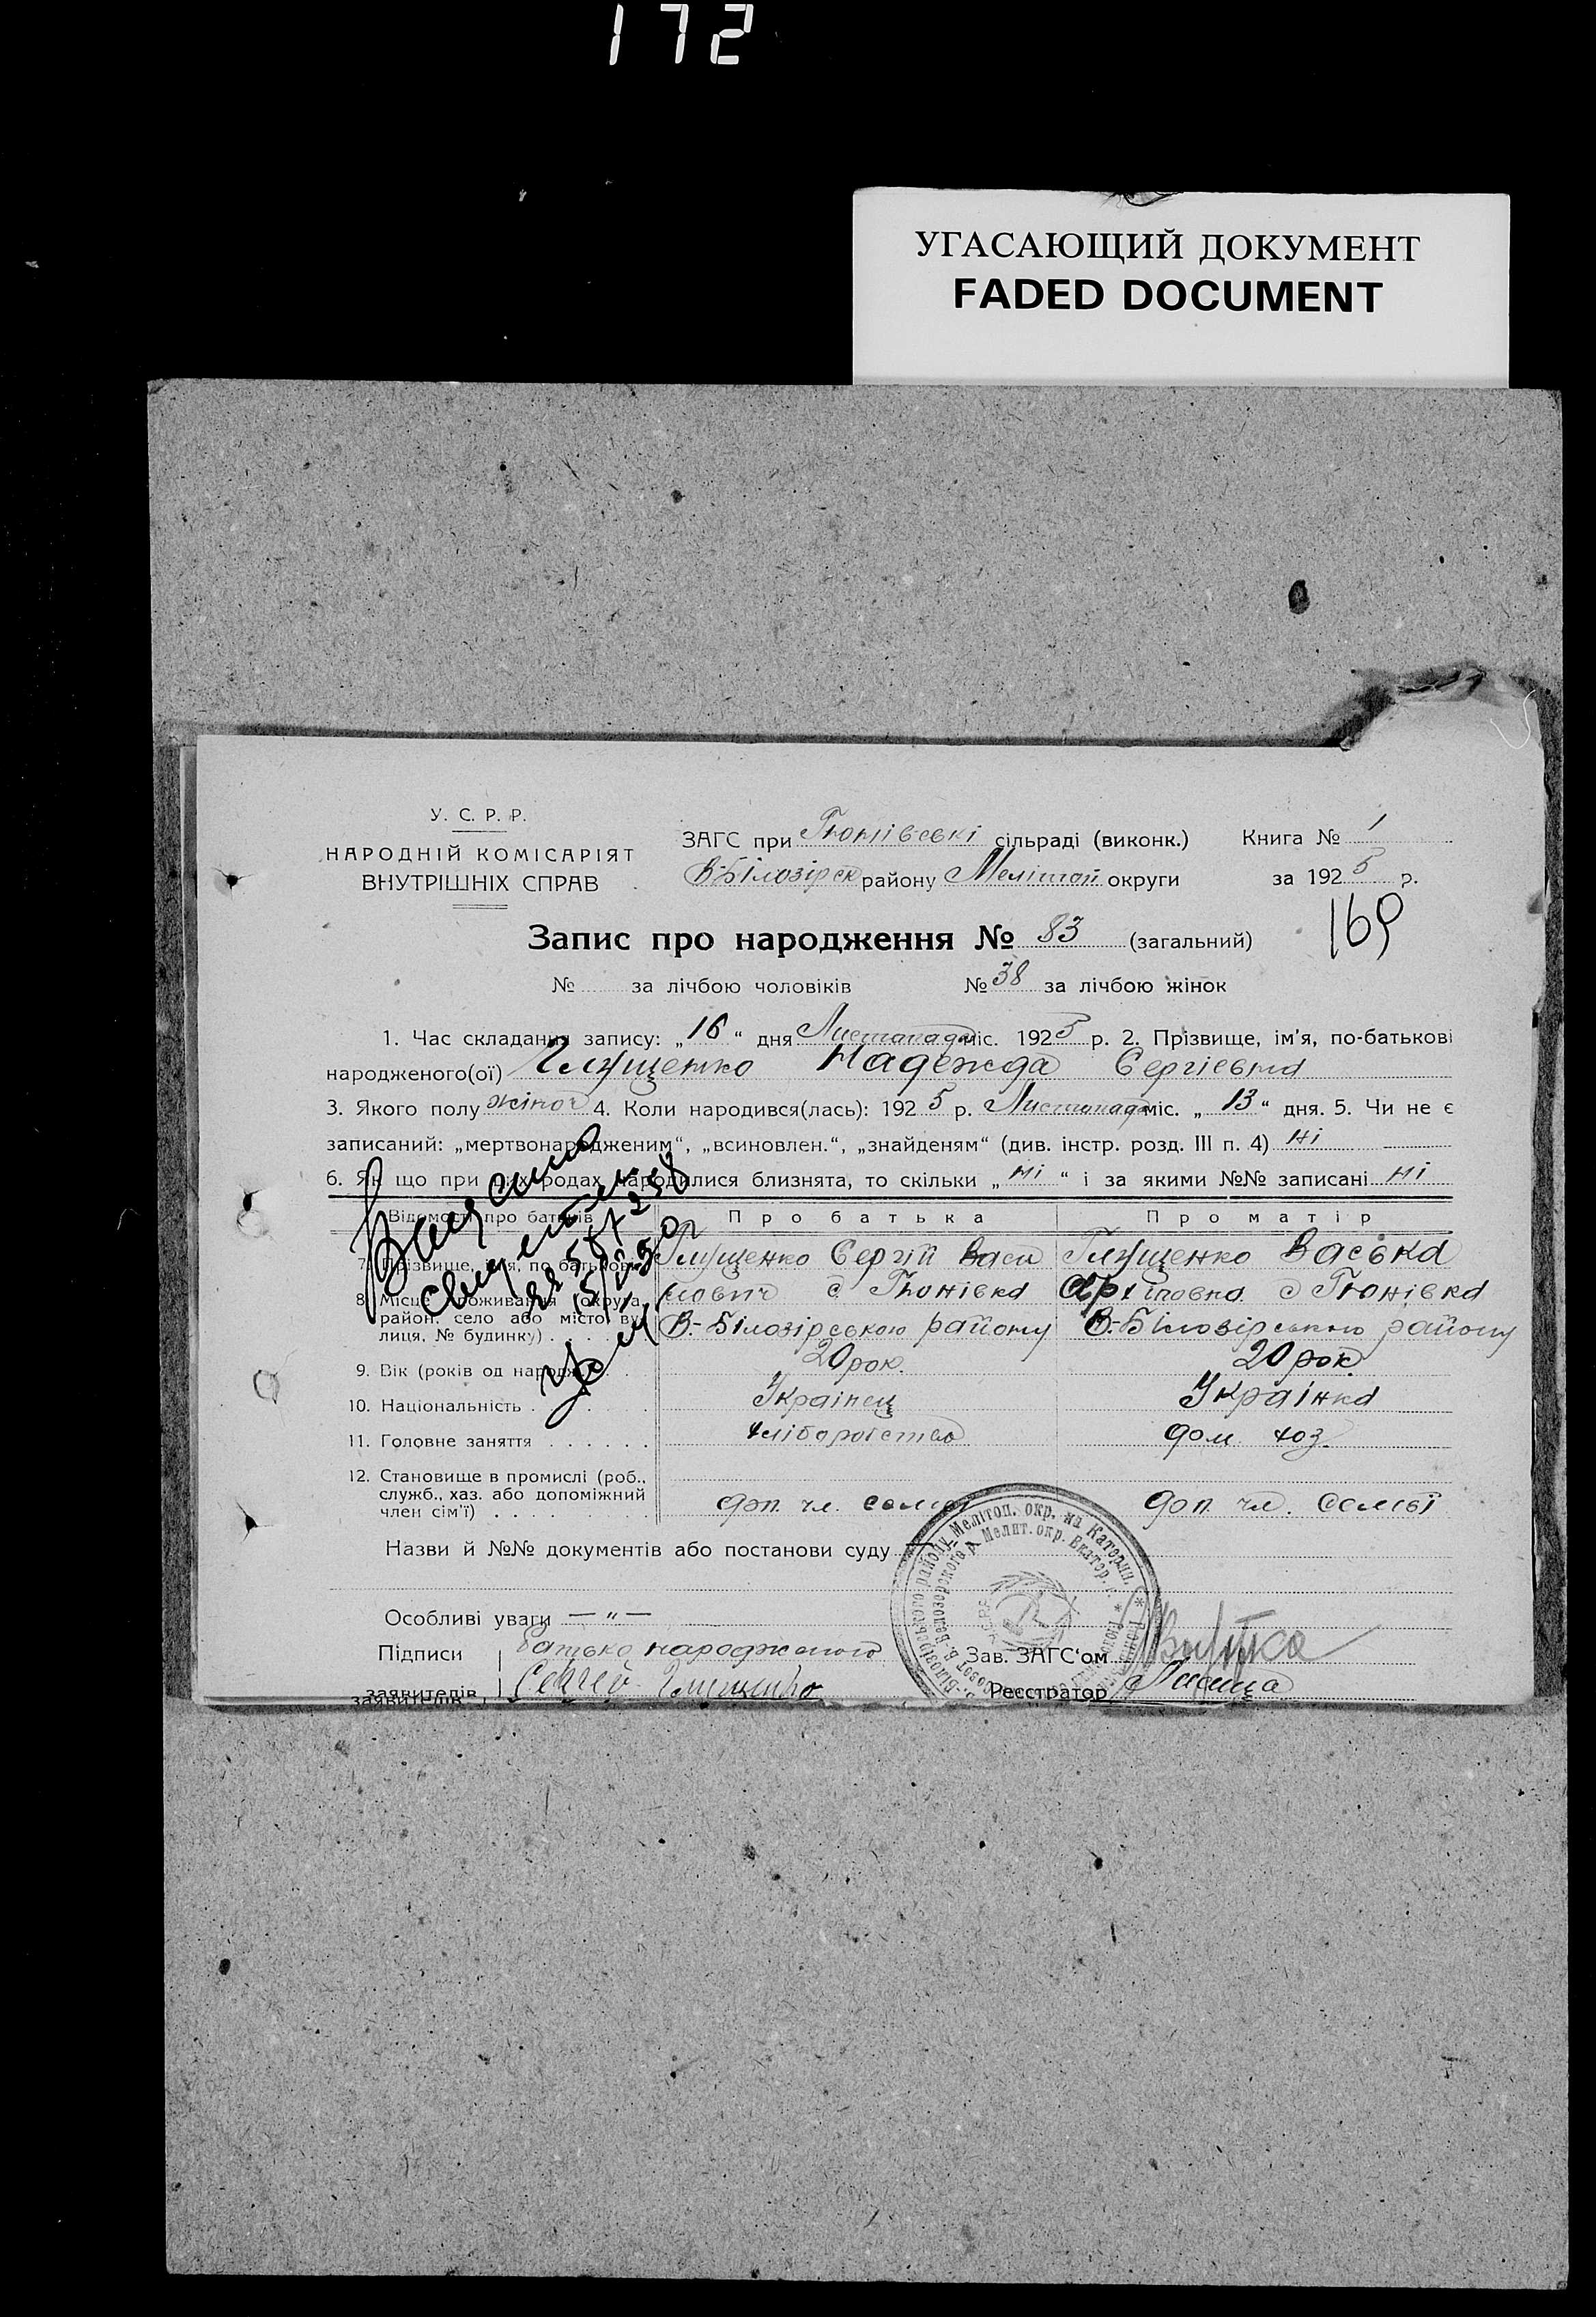 172
УГАСАЮЩИЙ ДОКУМЕНТ
FADED DOCUMENT
У. С. Р. Р.
НАРОДНІЙ КОМІСАРІЯТ
ВНУТРІШНІХ СПРАВ
ЗАГС при Тюнівські сільраді (виконк.) Книга № 1
В-Білозірск району Мелітоп округи за 1925 р.
169
Запис про народження № 83 (загальний)
№ за лічбою чоловіків № 38 за лічбою жінок
1. Час складання запису: „16“ дня Листопада міс. 1925 р. 2. Прізвище, ім'я, по-батькові
народженого(ої) Глущенко Надежда Сергієвна
3. Якого полу жіноч 4. Коли народився(лась): 1925 р. Листопада міс. „13“ дня. 5. Чи не є
записаний: „мертвонародженим“, „всиновлен.“, „знайденям“ (див. інстр. розд. III п. 4) ні
6. Як що при цих родах народилися близнята, то скільки „ні“ і за якими №№ записані ні
Відомості про батьків Про батька Про матір
7. Прізвище, ім'я, по батькові Глущенко Сергій Васи Глущенко Васька
8. Місце проживання (округа, лович с Тюнівка Архиповна с Тюнівка
район, село або місто, ву-
лиця, № будинку) В.-Білозірською району В.-Білозірською району
9. Вік (років од народж.) 20 рок. 20 рок
10. Національність Українец Українка
11. Головне заняття хліборобство дом. хоз.
12. Становище в промислі (роб.,
служб., хаз. або допоміжний
член сім'ї) доп. чл. семьї доп. чл. семьї
Выдано
свидетел
5/I 50г
Назви й №№ документів або постанови суду
Особливі уваги — " —
Підписи Батько народженого Зав. ЗАГС'ом
заявителів Сергей Глущенко Реєстратор Лисица